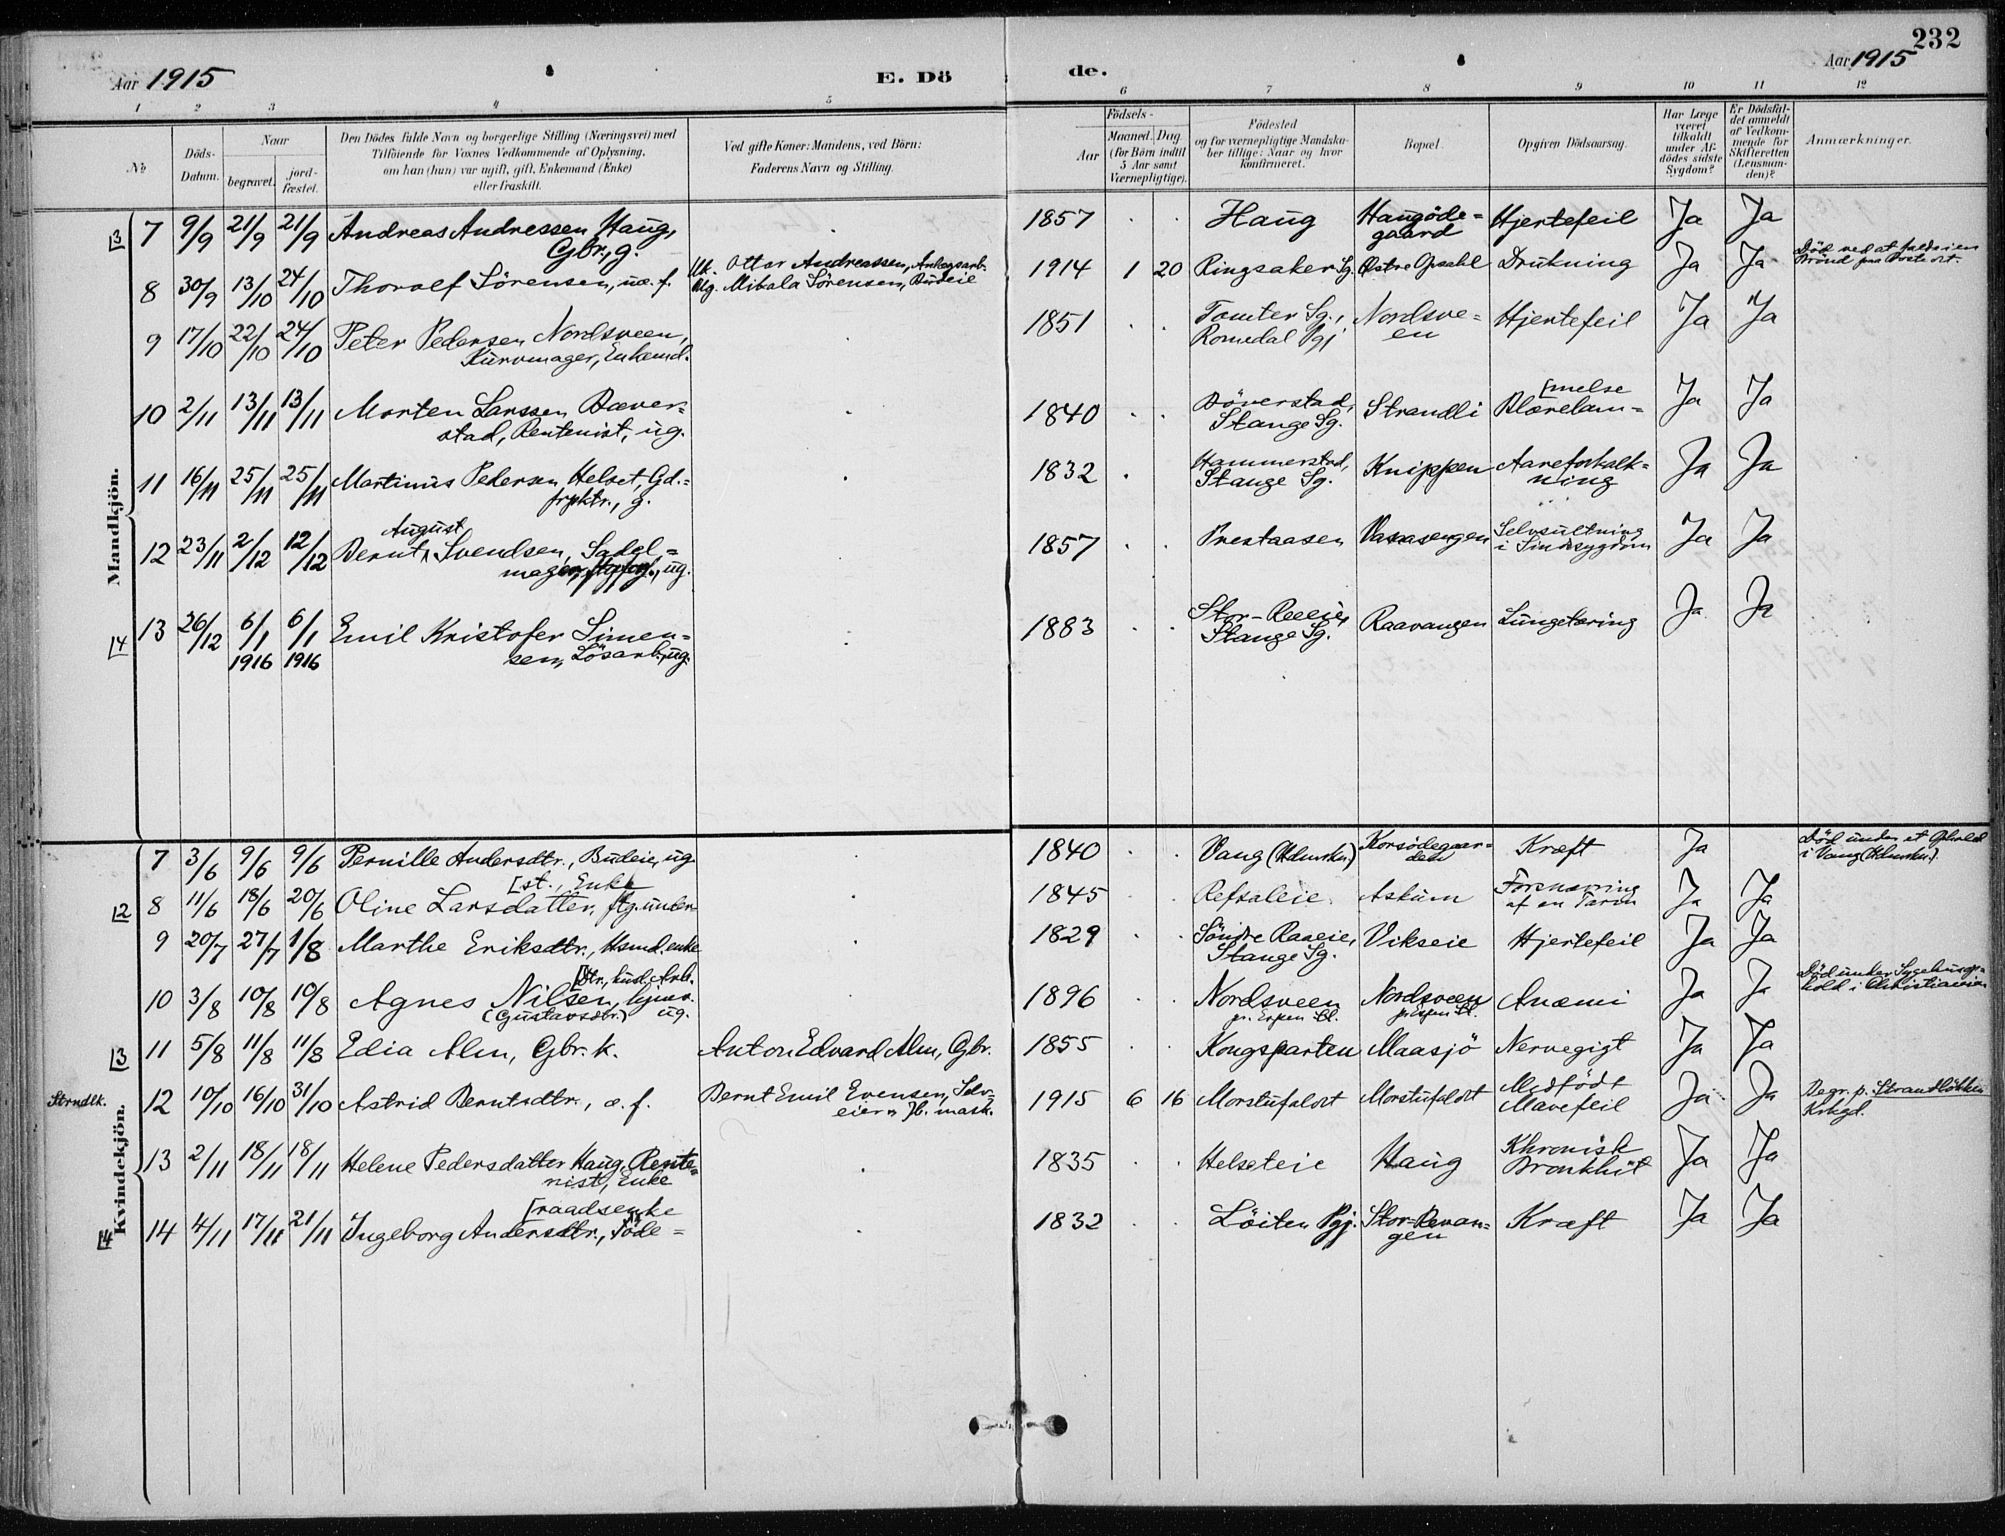 232
Aar 1915
E. Dö
de.
Aar 1915
1 2 3 4 5 6 7 8 9 10 11 12
No
Döds-
Datum.
Naar
begravet.
jord-
fæstet.
Den Dödes fulde Navn og borgerlige Stilling (Næringsvei) med
Tilföiende for Voxnes Vedkommende af Oplysning,
om han (hun) var ugift, gift, Enkemand (Enke)
eller fraskilt.
Ved gifte Koner: Mandens, ved Börn:
Faderens Navn og Stilling.
Födsels-
Aar
Maaned. Dag
(for Börn indtil
5 Aar samt
Værnepligtige).
Födested
og for værnepligtige Mandska-
ber tillige: Naar og hvor
konfirmeret.
Bopæl.
Opgiven Dödsaarsag.
Har Læge
været
tilkaldt
under Af-
dödes sidste
Sygdom?
Er Dödsfal-
det anmeldt
af Vedkom-
mende for
Skifteretten
(Lensman-
den)?
Anmærkninger.
Mandkjön.
3 7 9/9 21/9 21/9 Andreas Andressen Haug, 1857 Haug Haugöde- Hjertefeil Ja Ja
Gbr., g. gaard
8 30/9 13/10 24/10 Thoralf Sörensen, uæ. f. Uk. Ottar Andreassen, Anlægsarb. 1914 1 20 Ringsaker Sg. Østre Opsahl Drukning Ja Ja Död ved at falde i en
Ug. Mibala Sörensen, Budeie Brönd paa Bostedet.
9 17/10 22/10 24/10 Peter Pedersen Nordsveen, 1851 Tomter Sg., Nordsve- Hjertefeil Ja Ja
Kurvmager, Enkemd. Romedal Pgj en
10 2/11 13/11 13/11 Morten Larssen Bæver- 1840 Böverstad, Strandli Blærelam- [melse Ja Ja
stad, Rentenist, ug. Stange Sg.
11 16/11 25/11 25/11 Martinus Pedersen Helset, Gd.- 1832 Hammerstad, Knippen Aareforkalk- Ja Ja
frpktr., g. Stange Sg. ning
August
12 23/11 2/12 12/12 Bernt Svendsen, Sadel- 1857 Prestaasen Vasasengen Selvsultning Ja Ja
mager, ug. i Sindssygdom
4 13 26/12 6/1 6/1 Emil Kristofer Simen- 1883 Stor-Reeeie, Raavangen Lungetæring Ja Ja
1916 1916 sen, Lösarb., ug. Stange Sg.
Kvindekjön.
7 3/6 9/6 9/6 Pernille Andersdtr., Budeie, ug. 1840 Vang (Hdmrkn) Korsödegaar- Kræft Ja Död under et Ophold
den i Vang (Hdmrkn).
[st., Enke
2 8 11/6 18/6 20/6 Oline Larsdatter, ftg. under- 1845 Refsaleie Askum Forsnævring Ja Ja
af en Tarm
9 20/7 27/7 1/8 Marthe Eriksdtr., Hsmd. enke 1829 Söndre Raaeie, Vikseie Hjertefeil Ja Ja
Stange Sg.
10 3/8 10/8 10/8 Agnes Nilsen, hjmv. 1896 Nordsveen Nordsveen Anæmi Ja Ja Död under Sygehusop-
(Gustavsdtr.) ug. pr. Espen St. pr. Espen St. hold i Christiania
3 11 5/8 11/8 11/8 Edia Alm, Gbr. k. Anton Edvard Alm, Gbr. 1855 Kongsparten Maasjö Nervegigt Ja Ja
Strndlk. 12 10/10 16/10 31/10 Astrid Berntsdtr., æ. f. Bernt Emil Evensen, Selv- 1915 6 16 Morstufaldt Morstufaldt Medfödt Ja Ja Begr. p. Strandlökken
eier Mavefeil Krkgd.
13 2/11 18/11 18/11 Helene Pedersdatter Haug, Rente- 1835 Helseteie Haug Khronisk Ja Ja
nist, Enke Bronkhit
[raadsenke
4 14 4/11 17/11 21/11 Ingeborg Andersdtr., Föde- 1832 Löiten Pgj. Stor-Revan- Kræft Ja Ja
gen